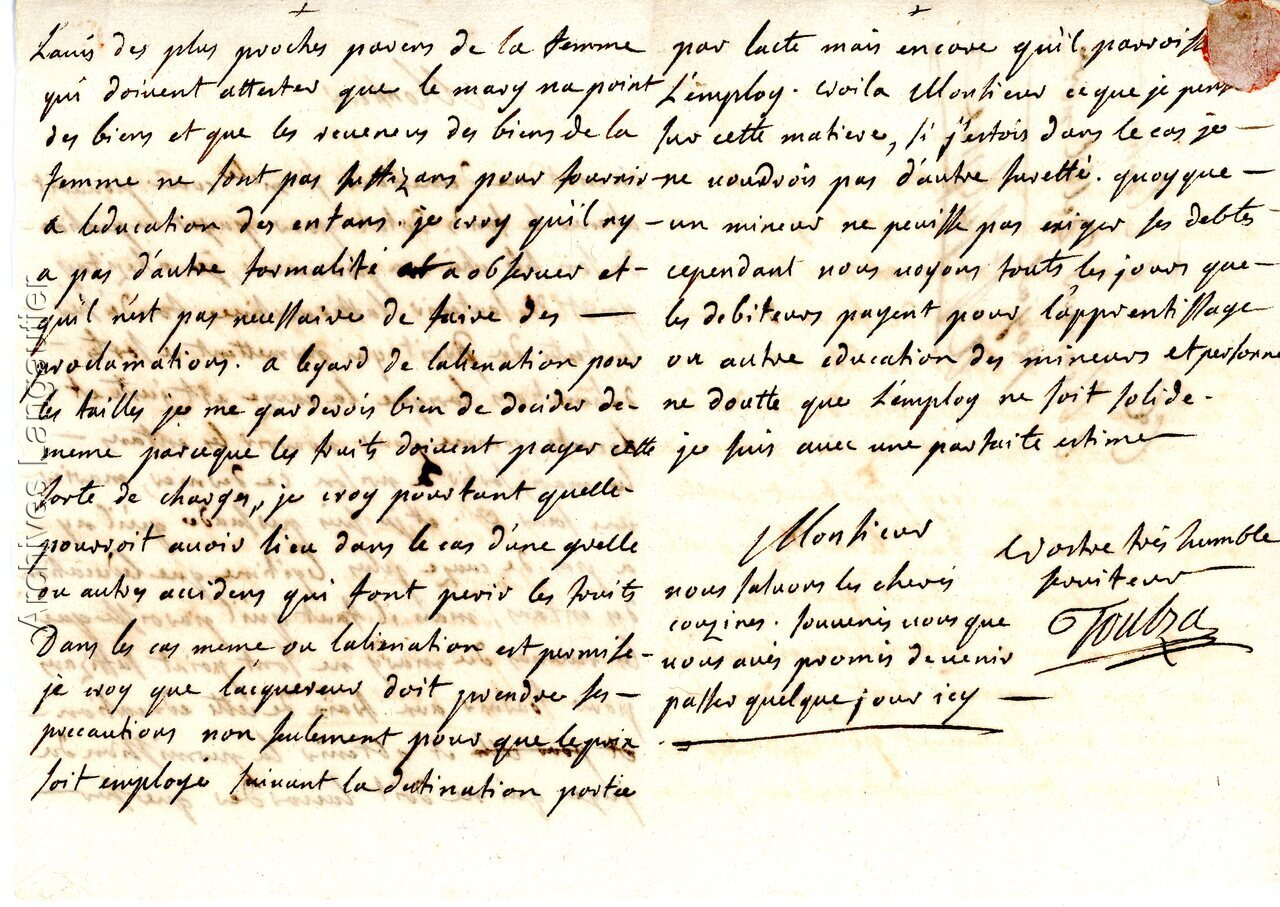 L'avis des plus proches parens de la femme
qui doivent attester que le mary na point
des biens et que les revenus des biens de la
femme ne sont pas suffizans pour fournir
a leducation des enfans. je croy qu'il ny
a pas d'autre formalité a observer et
qu'il n'est pas necessaire de faire des
proclamations. a legard de lalienation pour
les tailles je me garderois bien de decider de
meme parceque les fruits doivent payer cette
sorte de charges, je croy pourtant quelle
pourroit avoir lieu dans le cas d'une grelle
ou autres accidens qui font perir les fruits
Dans les cas meme ou lalienation est permise
je croy que l'acquereur doit prendre ses
precautions non seulement pour que le prix
soit employé suivant la destination portée
par lacte mais encore qu'il parroisse
L'employ. voila Monsieur ce que je pense
sur cette matiere, si j'estois dans le cas je
ne voudrois pas d'autre suretté. quoyque
un mineur ne peuisse pas exiger ses debtes
cependant nous voyons touts les jours que
les debiteurs payent pour l'apprentissage
ou autre education des mineurs et personne
ne doutte que L'employ ne soit solide.
je suis avec une parfaite estime
Monsieur
Vostre très humble
serviteur
Toulza
nous saluons les cheres
couzines. souvenés vous que
vous avés promis de venir
passer quelque jour icy
Archives Langeudier